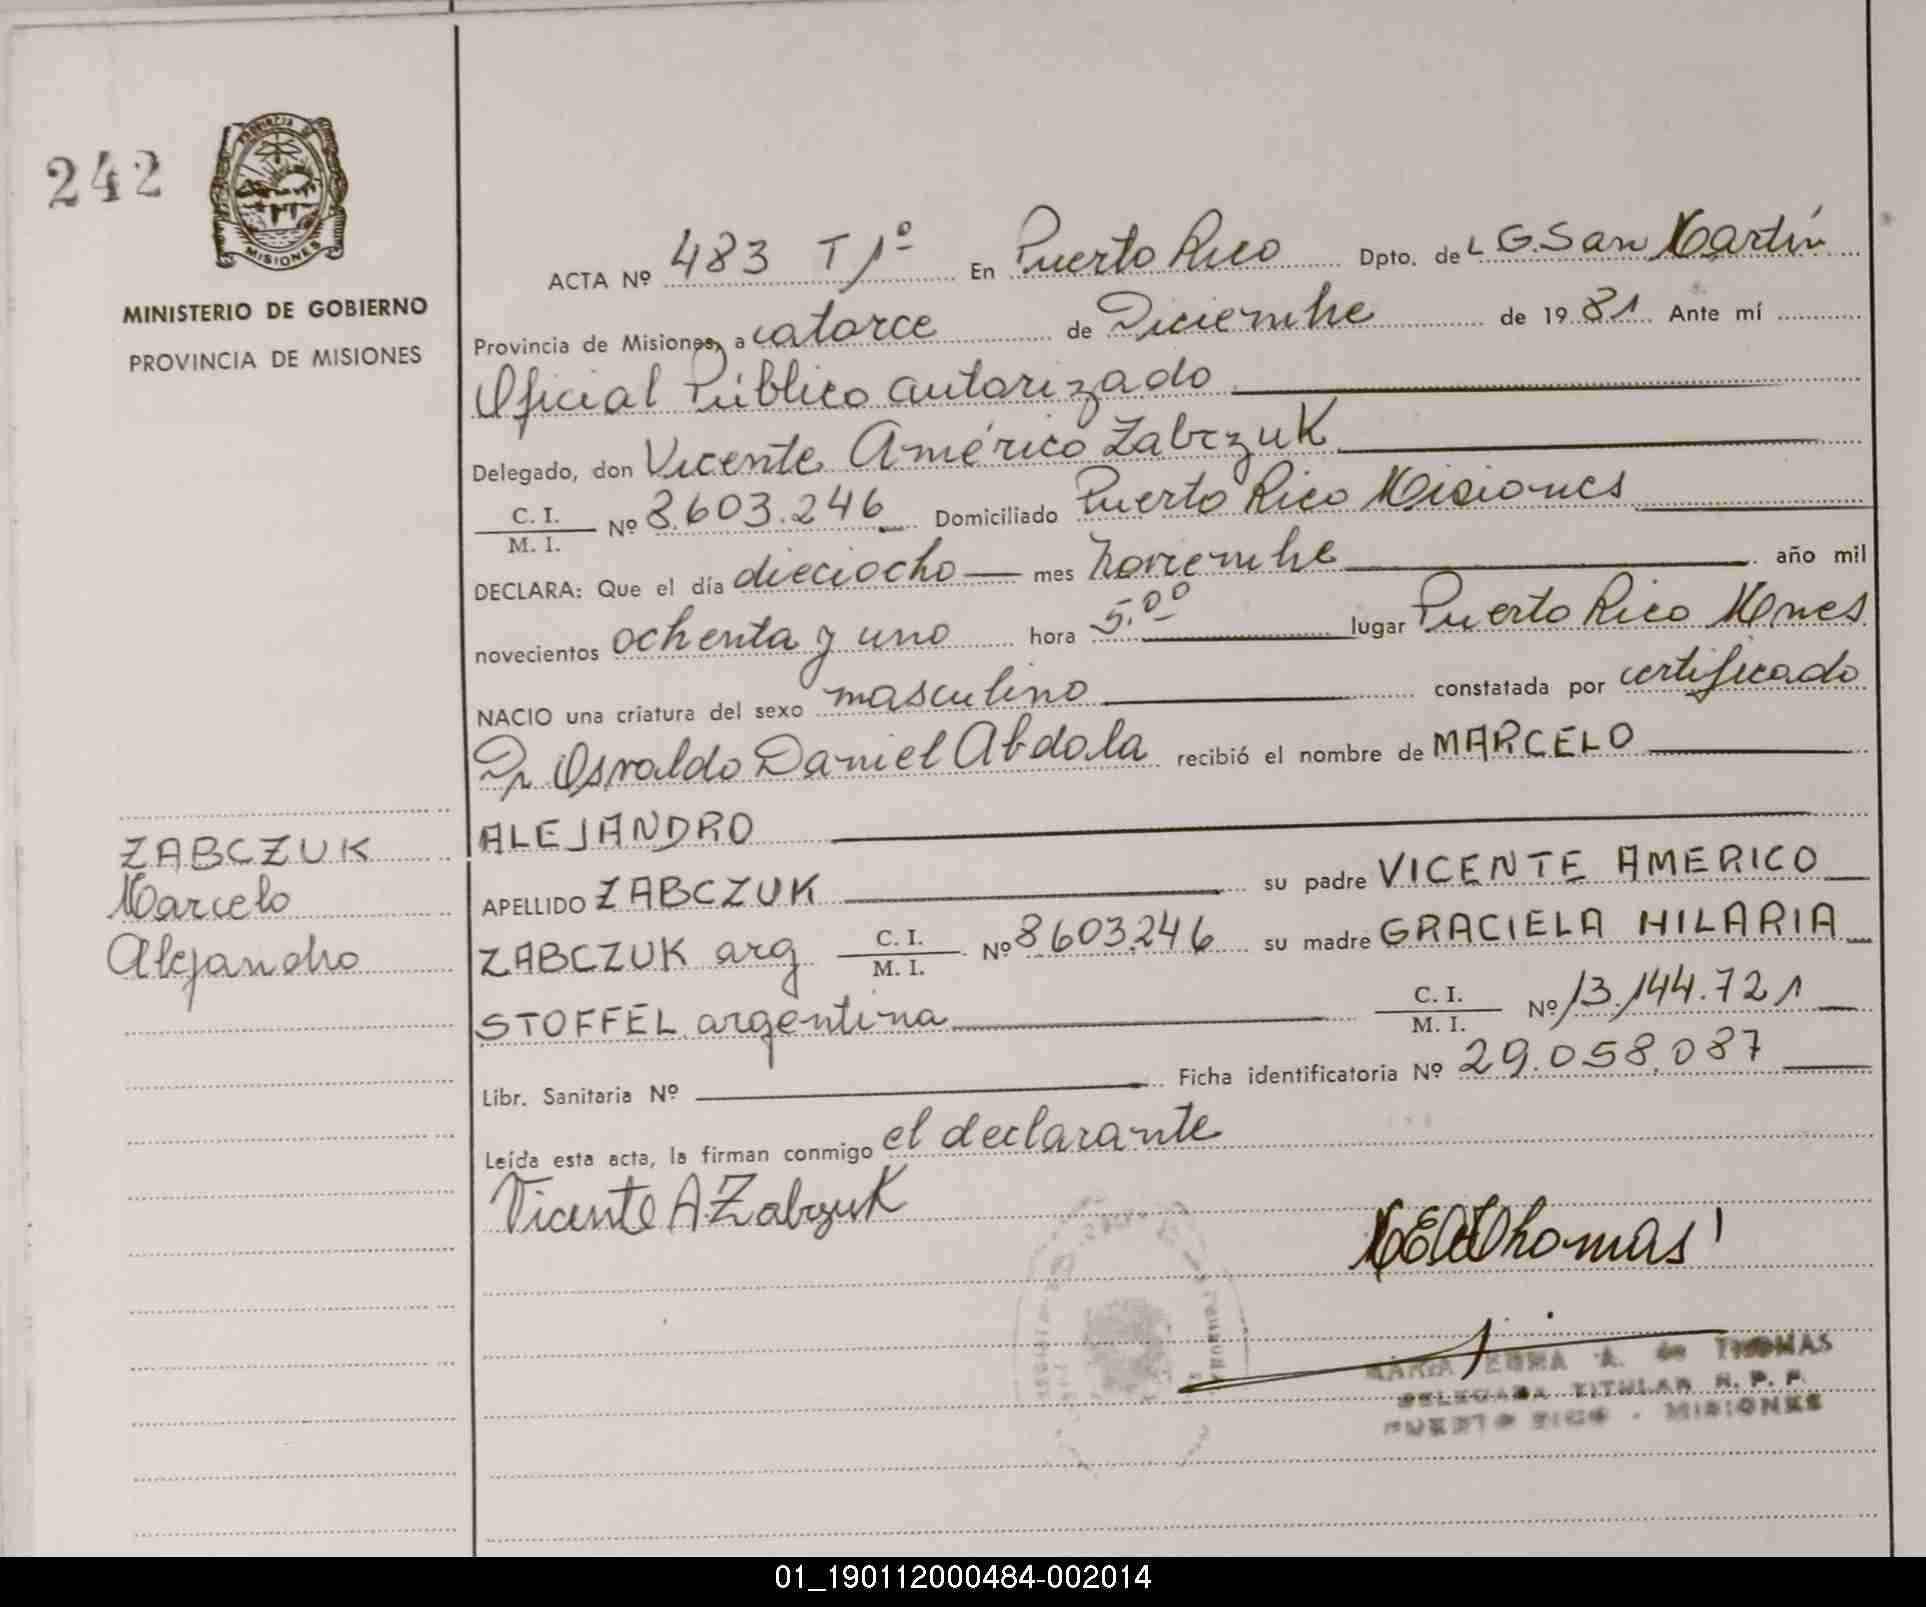 242
PROVINCIA DE
MISIONES
MINISTERIO DE GOBIERNO
PROVINCIA DE MISIONES
ACTA Nº 483 T 1º En Puerto Rico Dpto. de L G. San Martín
Provincia de Misiones, a catorce de Diciembre de 1981 Ante mí
Oficial Público autorizado
Delegado, don Vicente Américo Zabczuk
C. I.
M. I. Nº 8.603.246 Domiciliado Puerto Rico Misiones
DECLARA: Que el día dieciocho mes noviembre año mil
novecientos ochenta y uno hora 5.00 lugar Puerto Rico Mnes
NACIO una criatura del sexo masculino constatada por certificado
Dr. Osvaldo Daniel Abdola recibió el nombre de MARCELO
ALEJANDRO
ZABCZUK
Marcelo
Alejandro
APELLIDO ZABCZUK su padre VICENTE AMERICO
ZABCZUK arg C. I.
M. I. Nº 8603.246 su madre GRACIELA HILARIA
STOFFEL argentina C. I.
M. I. Nº 13.144.721
Libr. Sanitaria Nº Ficha identificatoria Nº 29.058.087
Leída esta acta, la firman conmigo el declarante
Vicente A. Zabczuk
Thomas
MARIA A. de THOMAS
DELEGADA TITULAR R. P. P.
PUERTO RICO - MISIONES
01_190112000484-002014